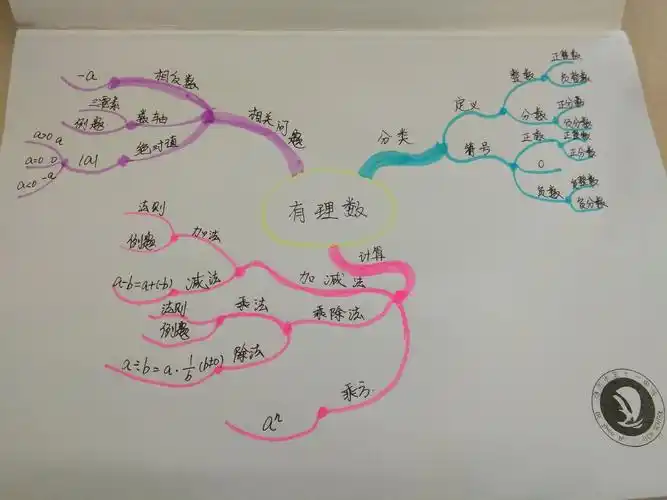 有理数
相关问题
相反数
-a
数轴
三要素
例题
绝对值
|a|
a>0 a
a=0 0
a<0 -a
分类
定义
整数
正整数
负整数
分数
正分数
负分数
符号
正数
正整数
正分数
0
负数
负整数
负分数
计算
加减法
加法
法则
例题
减法
a-b=a+(-b)
乘除法
乘法
法则
例题
除法
a÷b=a·1/b (b≠0)
乘方
aⁿ